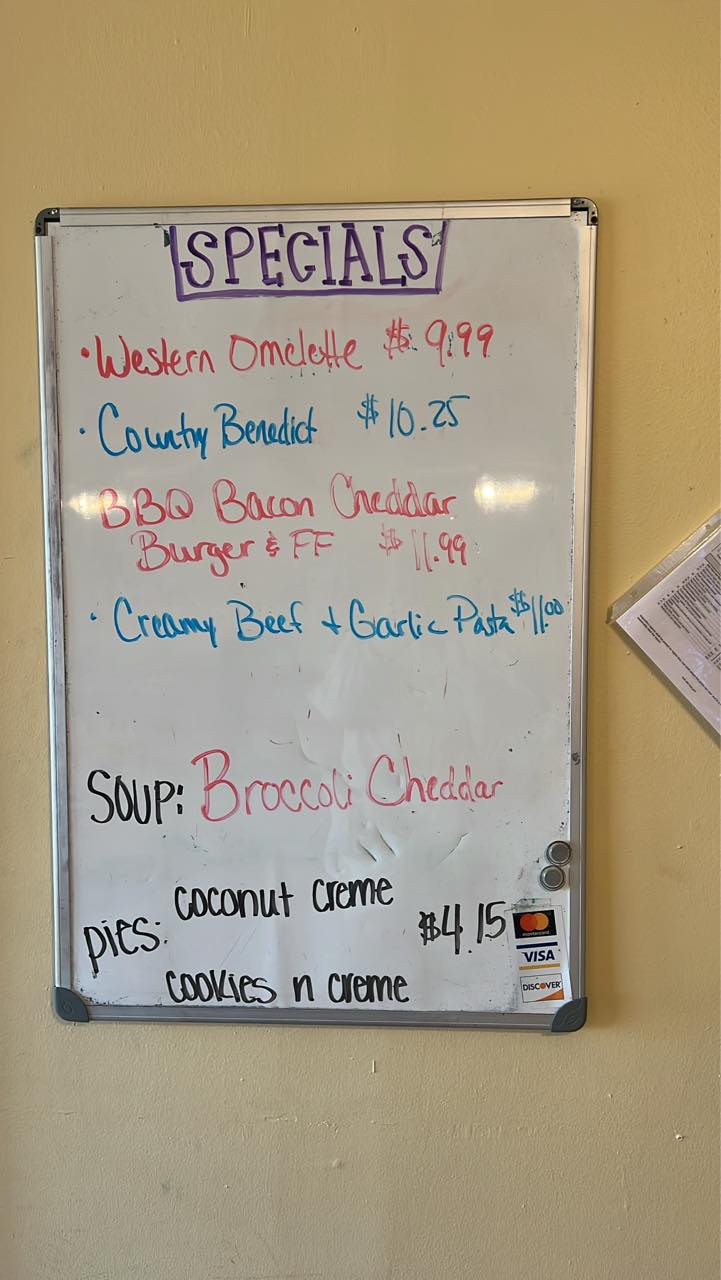 SPECIALS
• Western Omelette $ 9.99
• Country Benedict $ 10.25
BBQ Bacon Cheddar
Burger & FF $ 11.99
• Creamy Beef + Garlic Pasta $11.00
SOUP: Broccoli Cheddar
coconut creme
pies: $4.15
cookies n creme
mastercard
VISA
DISCOVER